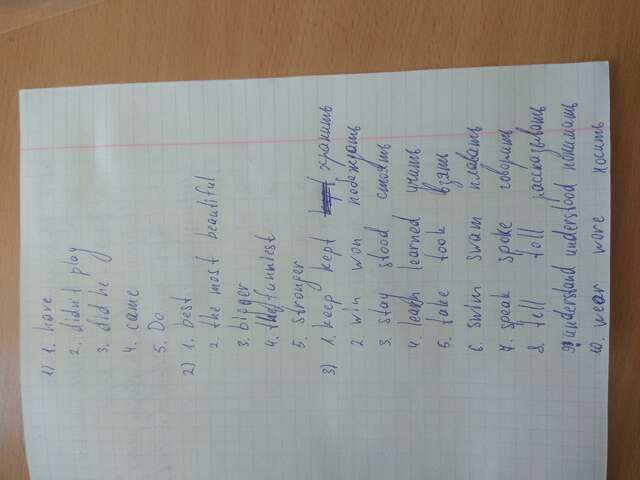 1) 1. have
2. didn't play
3. did he
4. came
5. Do
2) 1. best
2. the most beautiful
3. bigger
4. the funniest
5. stronger
3) 1. keep kept хранить
2. win won побеждать
3. stay stood стоять
4. learn learned учить
5. take took взять
6. swim swam плавать
7. speak spoke говорить
8. tell toll рассказывать
9. understand understood понимать
10. wear wore носить